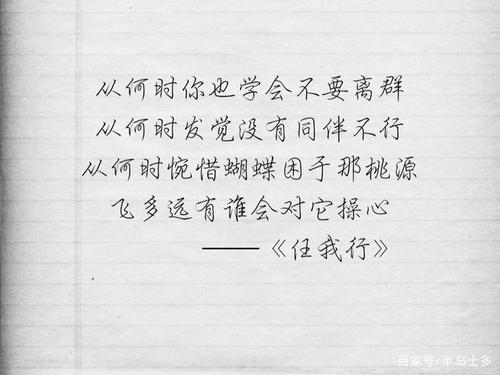 从何时你也学会不要离群
从何时发觉没有同伴不行
从何时惋惜蝴蝶困于那桃源
飞多远有谁会对它操心
——《任我行》
百家号/半岛士多